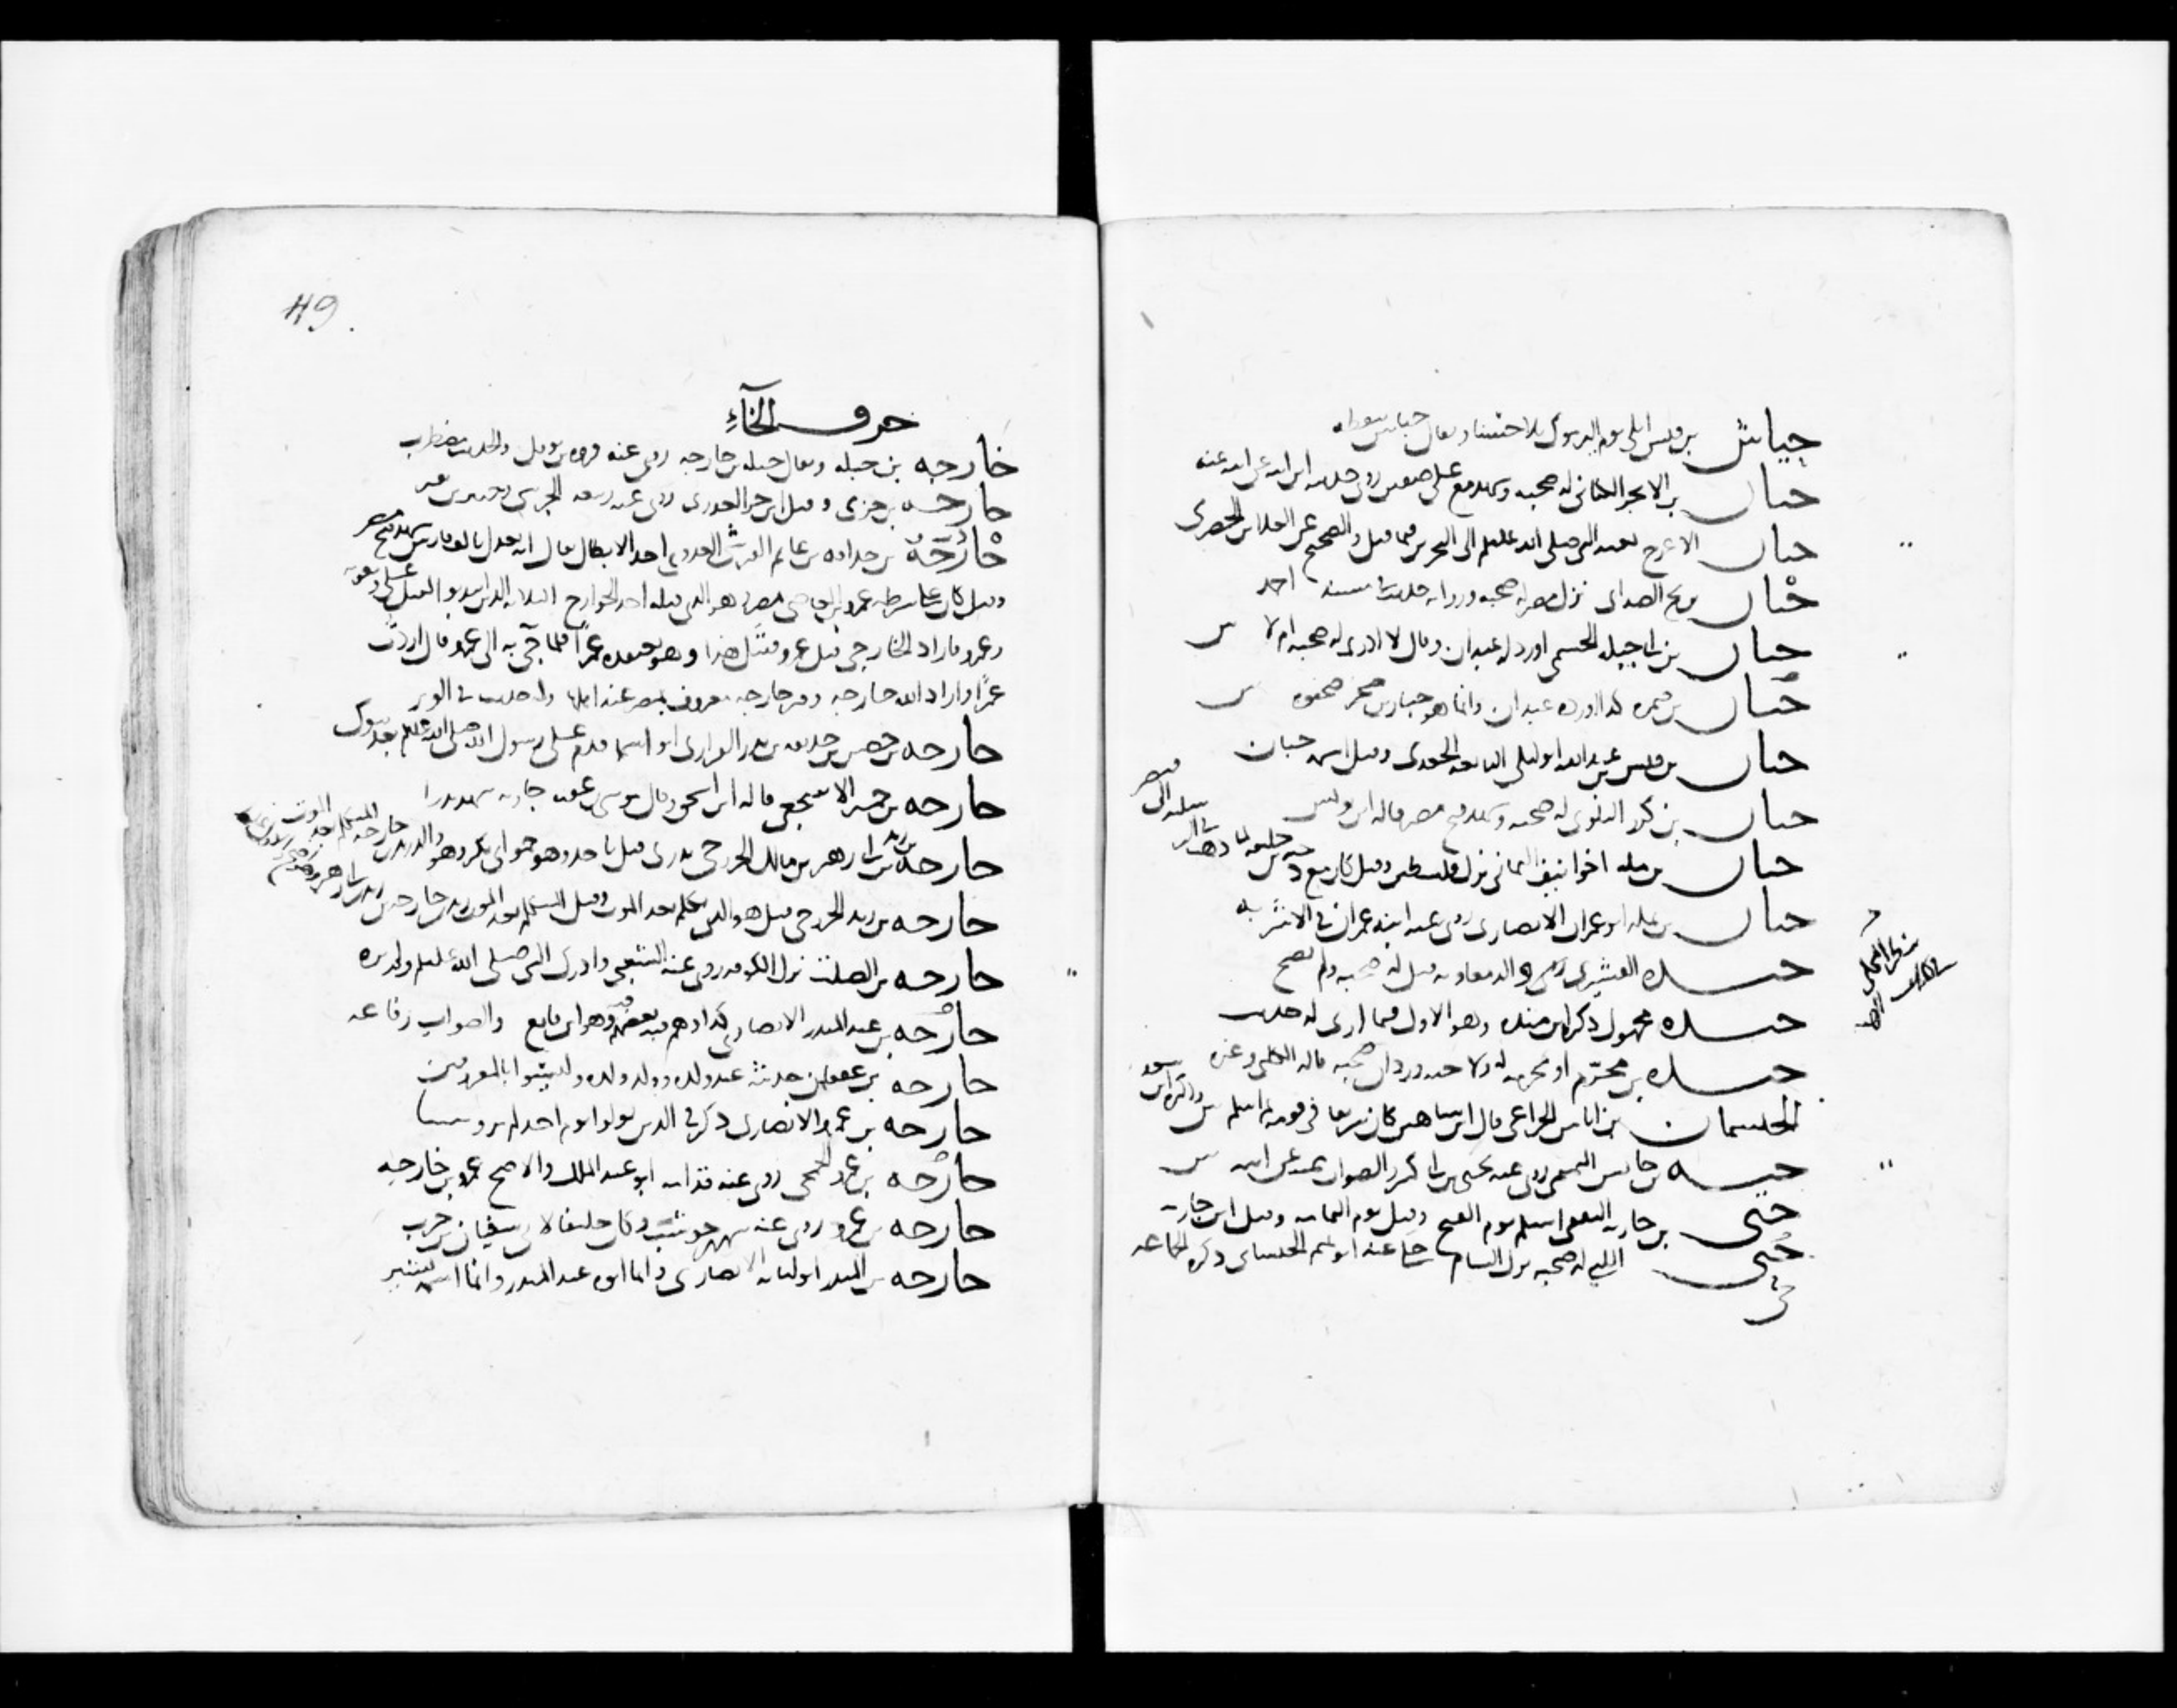 حياش بن قيس ابلى يوم اليرموك بلاء حسنا ويقال
حيان بن الابجر الكناني له صحبة وشهد مع علي صفين روى حديثه ابن ابنه عن ابيه عنه
حيان الاعرج بعثه النبي صلى الله عليه وسلم الى البحرين فيما قيل والصحيح عن العلاء بن الحضرمي
حيان بن بح الصدائي نزل مصر له صحبة ورواية حديثه في مسند احمد
حيان بن ابي جبلة اورده عبدان وقال لا ادري له صحبة ام لا س
حيان بن ضمرة كذا اورده عبدان وانما هو جبار بن صخر صحفوه س
حيان بن قيس بن عبد الله ابو ليلى النابغة الجعدي وقيل اسمه حبان
حيان بن كرز البلوي له صحبة وشهد فتح مصر قاله ابن يونس
حيان بن ملة اخو انيف اليماني نزل فلسطين وقيل كان مع دحية بن خليفة لما
حيان بن نملة ابو عمران الانصاري روى عنه ابنه عمران في الاشربة
حيدة القشيري والد معاوية قيل له صحبة ولم يصح
حيدة مجهول ذكره ابن منده وهو الاول فيما ارى له حديث
حيدة بن مخرم او مخرمة له ولاخيه وردان صحبة قاله الكلبي وغيره
الحيسمان بن اياس الخزاعي قال ابن شاهين كان شريفا في قومه ثم اسلم س
حية بن حابس التميمي روى عنه يحيى بن ابي كثير الصواب عنه عن ابيه س
حيي بن جارية الثقفي اسلم يوم الفتح وقتل يوم اليمامة وقيل ابن حارثة
حيي الليثي له صحبة نزل الشام حكى عنه ابو تميم الجيشاني ذكره الجماعة
49.
حرف الخاء
خارجة بن جبلة ويقال جبلة بن خارجة روى عنه فروة بن نوفل والحديث مضطرب
خارجة بن جزي وقيل ابن جزء العذري روى عنه ربيعة الجرشي
خارجة بن حذافة بن غانم القرشي العدوي احد الابطال يقال انه يعدل بالف فارس شهد فتح مصر
وقيل كان على شرطة عمرو بن العاص بمصر هو الذي قتله احد الخوارج الثلاثة الذين انتدبوا لقتل علي ومعوية
وعمرو فاراد الخارجي قتل عمرو فقتل هذا وهو يعتقده عمرا فلما جيء به الى عمرو قال اردت
عمرا واراد الله خارجة وقبر خارجة معروف بمصر عند اهلها وله حديث في الوتر
خارجة بن حصن بن حذيفة بن بدر الفزاري ابو اسماء قدم على رسول الله صلى الله عليه وسلم بعد تبوك
خارجة بن حمير الاشجعي قاله ابن اسحق وقال موسى بن عقبة جارية شهد بدرا
خارجة بن زيد بن ابي زهير بن مالك الخزرجي بدري قتل باحد وهو حمو ابي بكر وهو والد زيد بن خارجة المتكلم بعد الموت
خارجة بن زيد الخزرجي قيل هو الذي تكلم بعد الموت وقيل المتكلم بعد الموت زيد بن خارجة بن زيد بن ابي زهير
خارجة بن الصلت نزل الكوفة روى عنه الشعبي وادرك النبي صلى الله عليه وسلم ولم يره
خارجة بن عبد المنذر الانصاري كذا وهم فيه بعضهم وهو ابن قانع والصواب رفاعة
خارجة بن عقفان حديثه عند ولده وولد ولده وليسوا بالمعروفين
خارجة بن عمرو الانصاري ذكر في الذين تولوا يوم احد لم يرو شيئا
خارجة بن عمرو الجمحي روى عنه قدامة ابو عبد الملك والاصح عمرو بن خارجة
خارجة بن عمرو روى عنه شهر بن حوشب وكان حليفا لابي سفيان بن حرب
خارجة بن المنذر ابو لبابة الانصاري وانما ابوه عبد المنذر وانما اسمه بشير